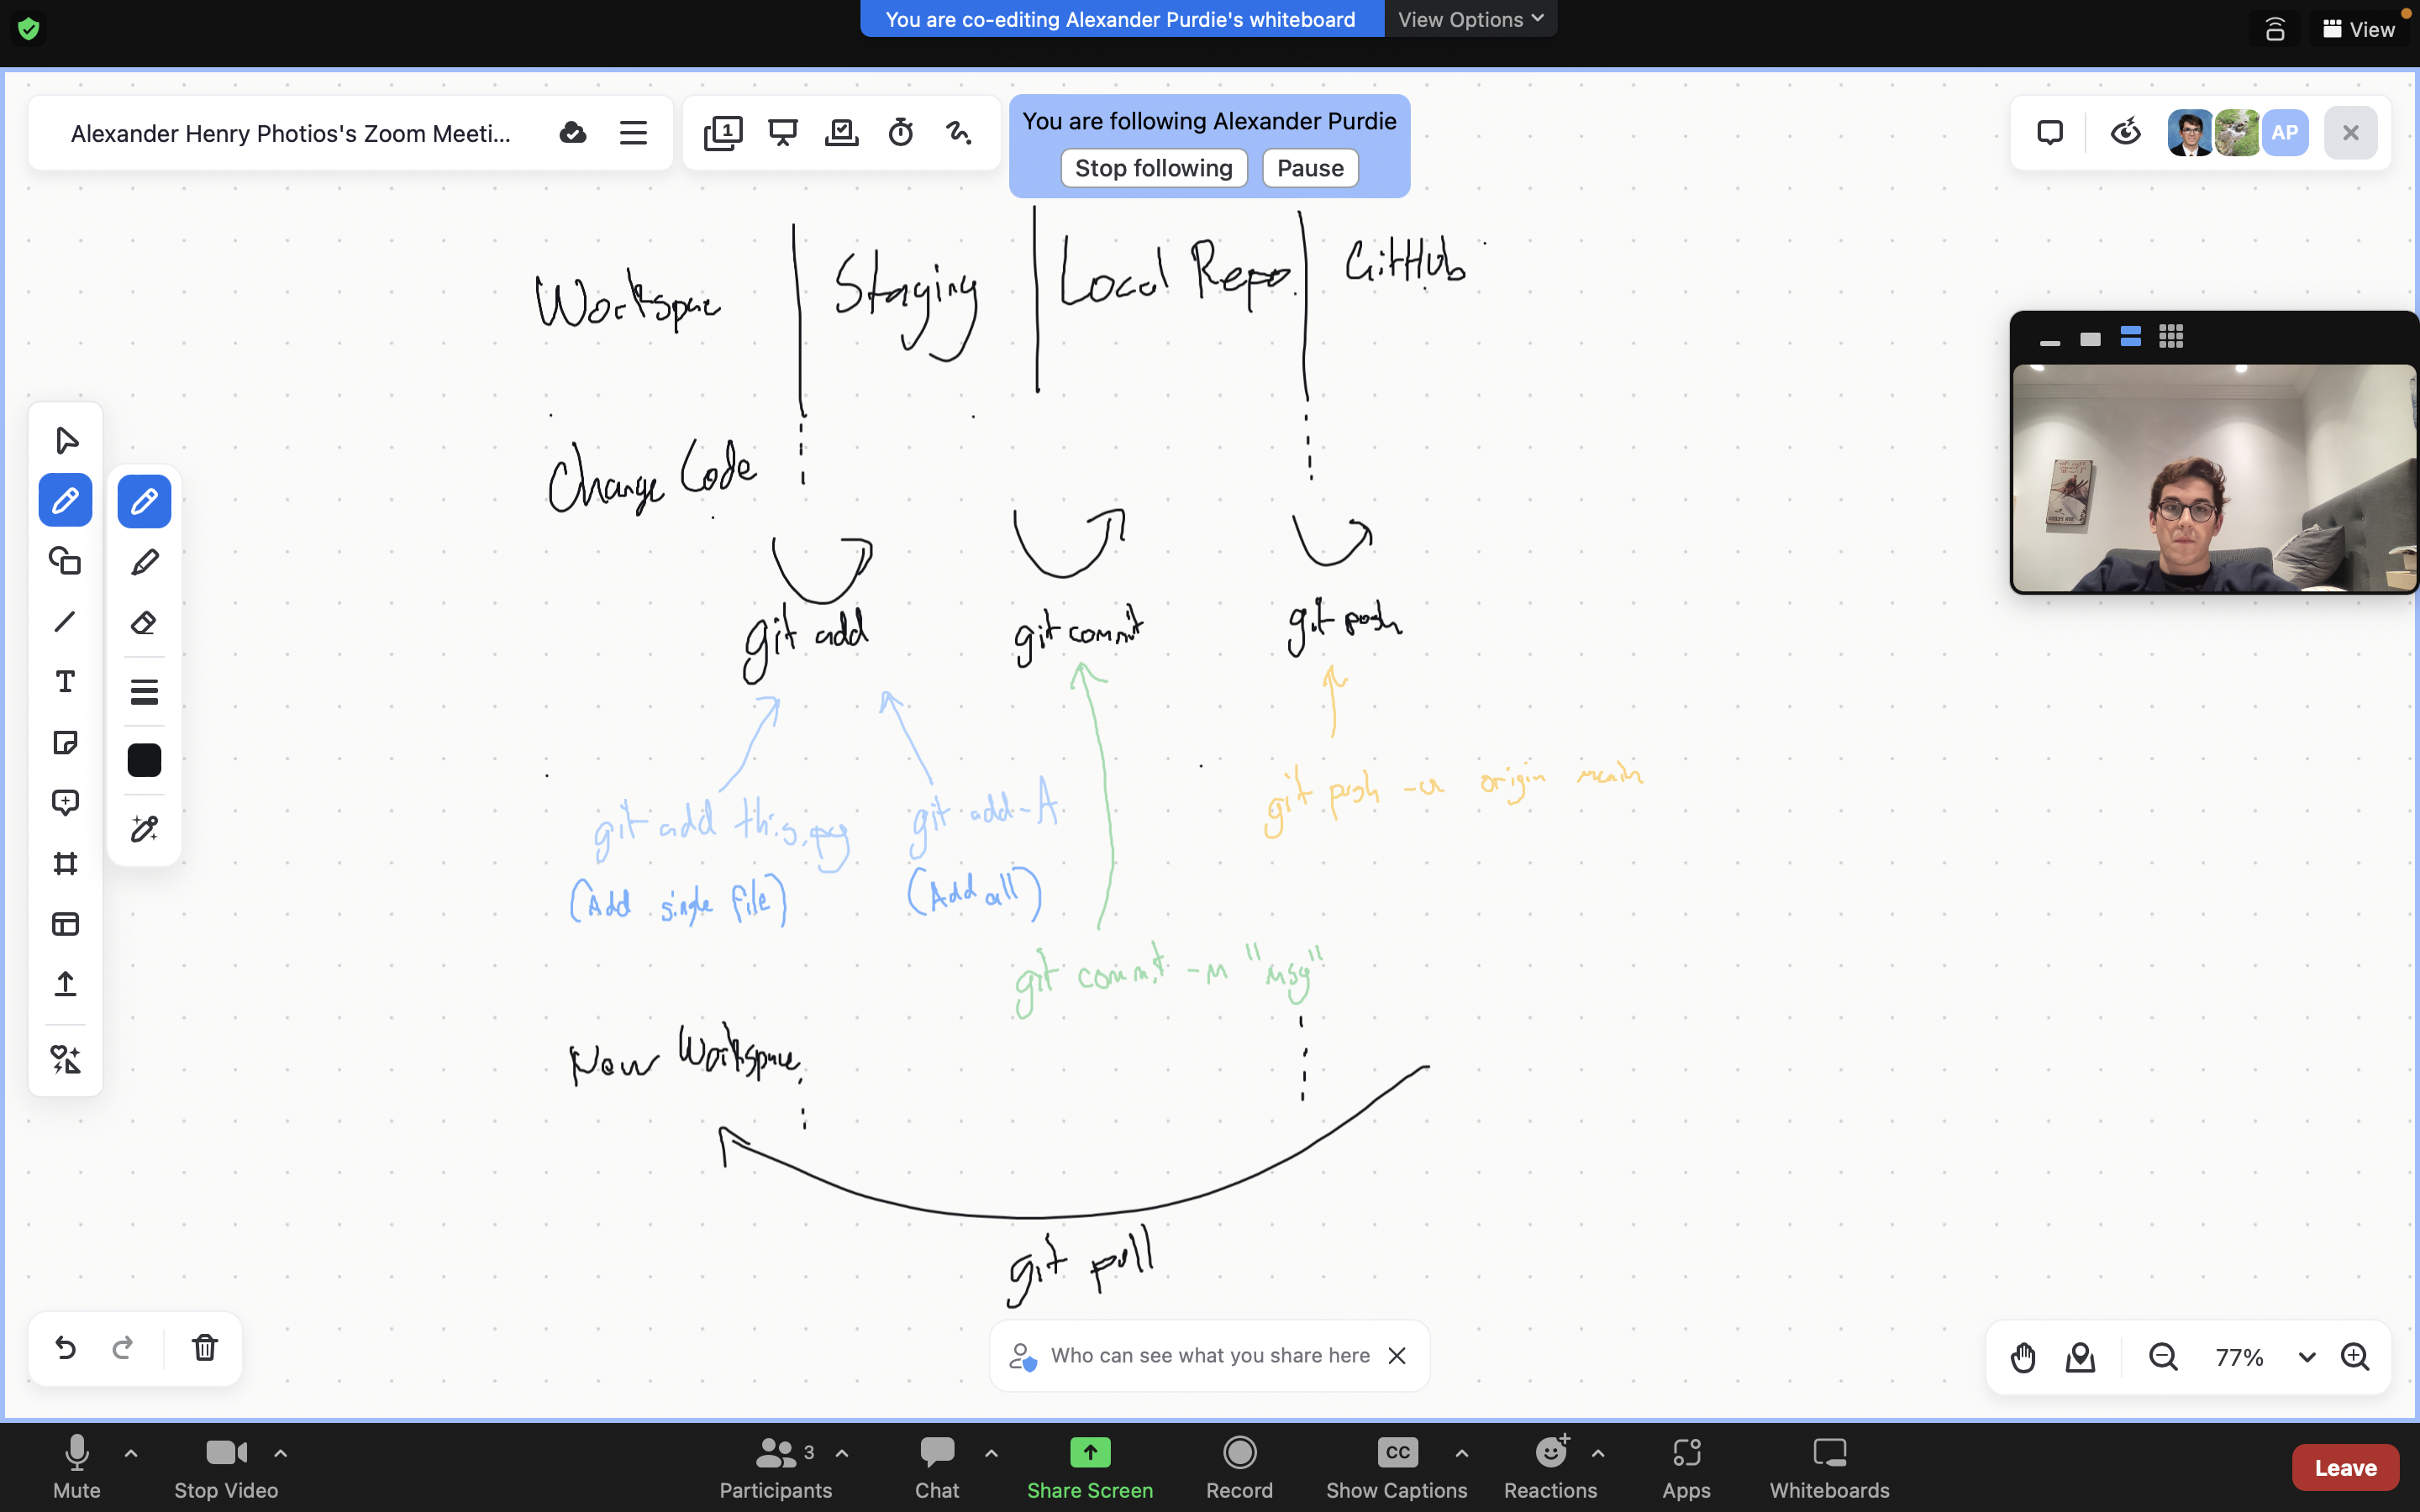 You are co-editing Alexander Purdie's whiteboard
View Options
View
Alexander Henry Photios's Zoom Meeti...
1
You are following Alexander Purdie
Stop following
Pause
AP
Workspace
Staging
Local Repo
GitHub
Change Code
git add
git commit
git push
git add this.py
git add -A
git push -u origin main
(Add single file)
(Add all)
git commit -m "msg"
New Workspace
git pull
T
Who can see what you share here
77%
Mute
Stop Video
Participants
3
Chat
Share Screen
Record
CC
Show Captions
Reactions
Apps
Whiteboards
Leave